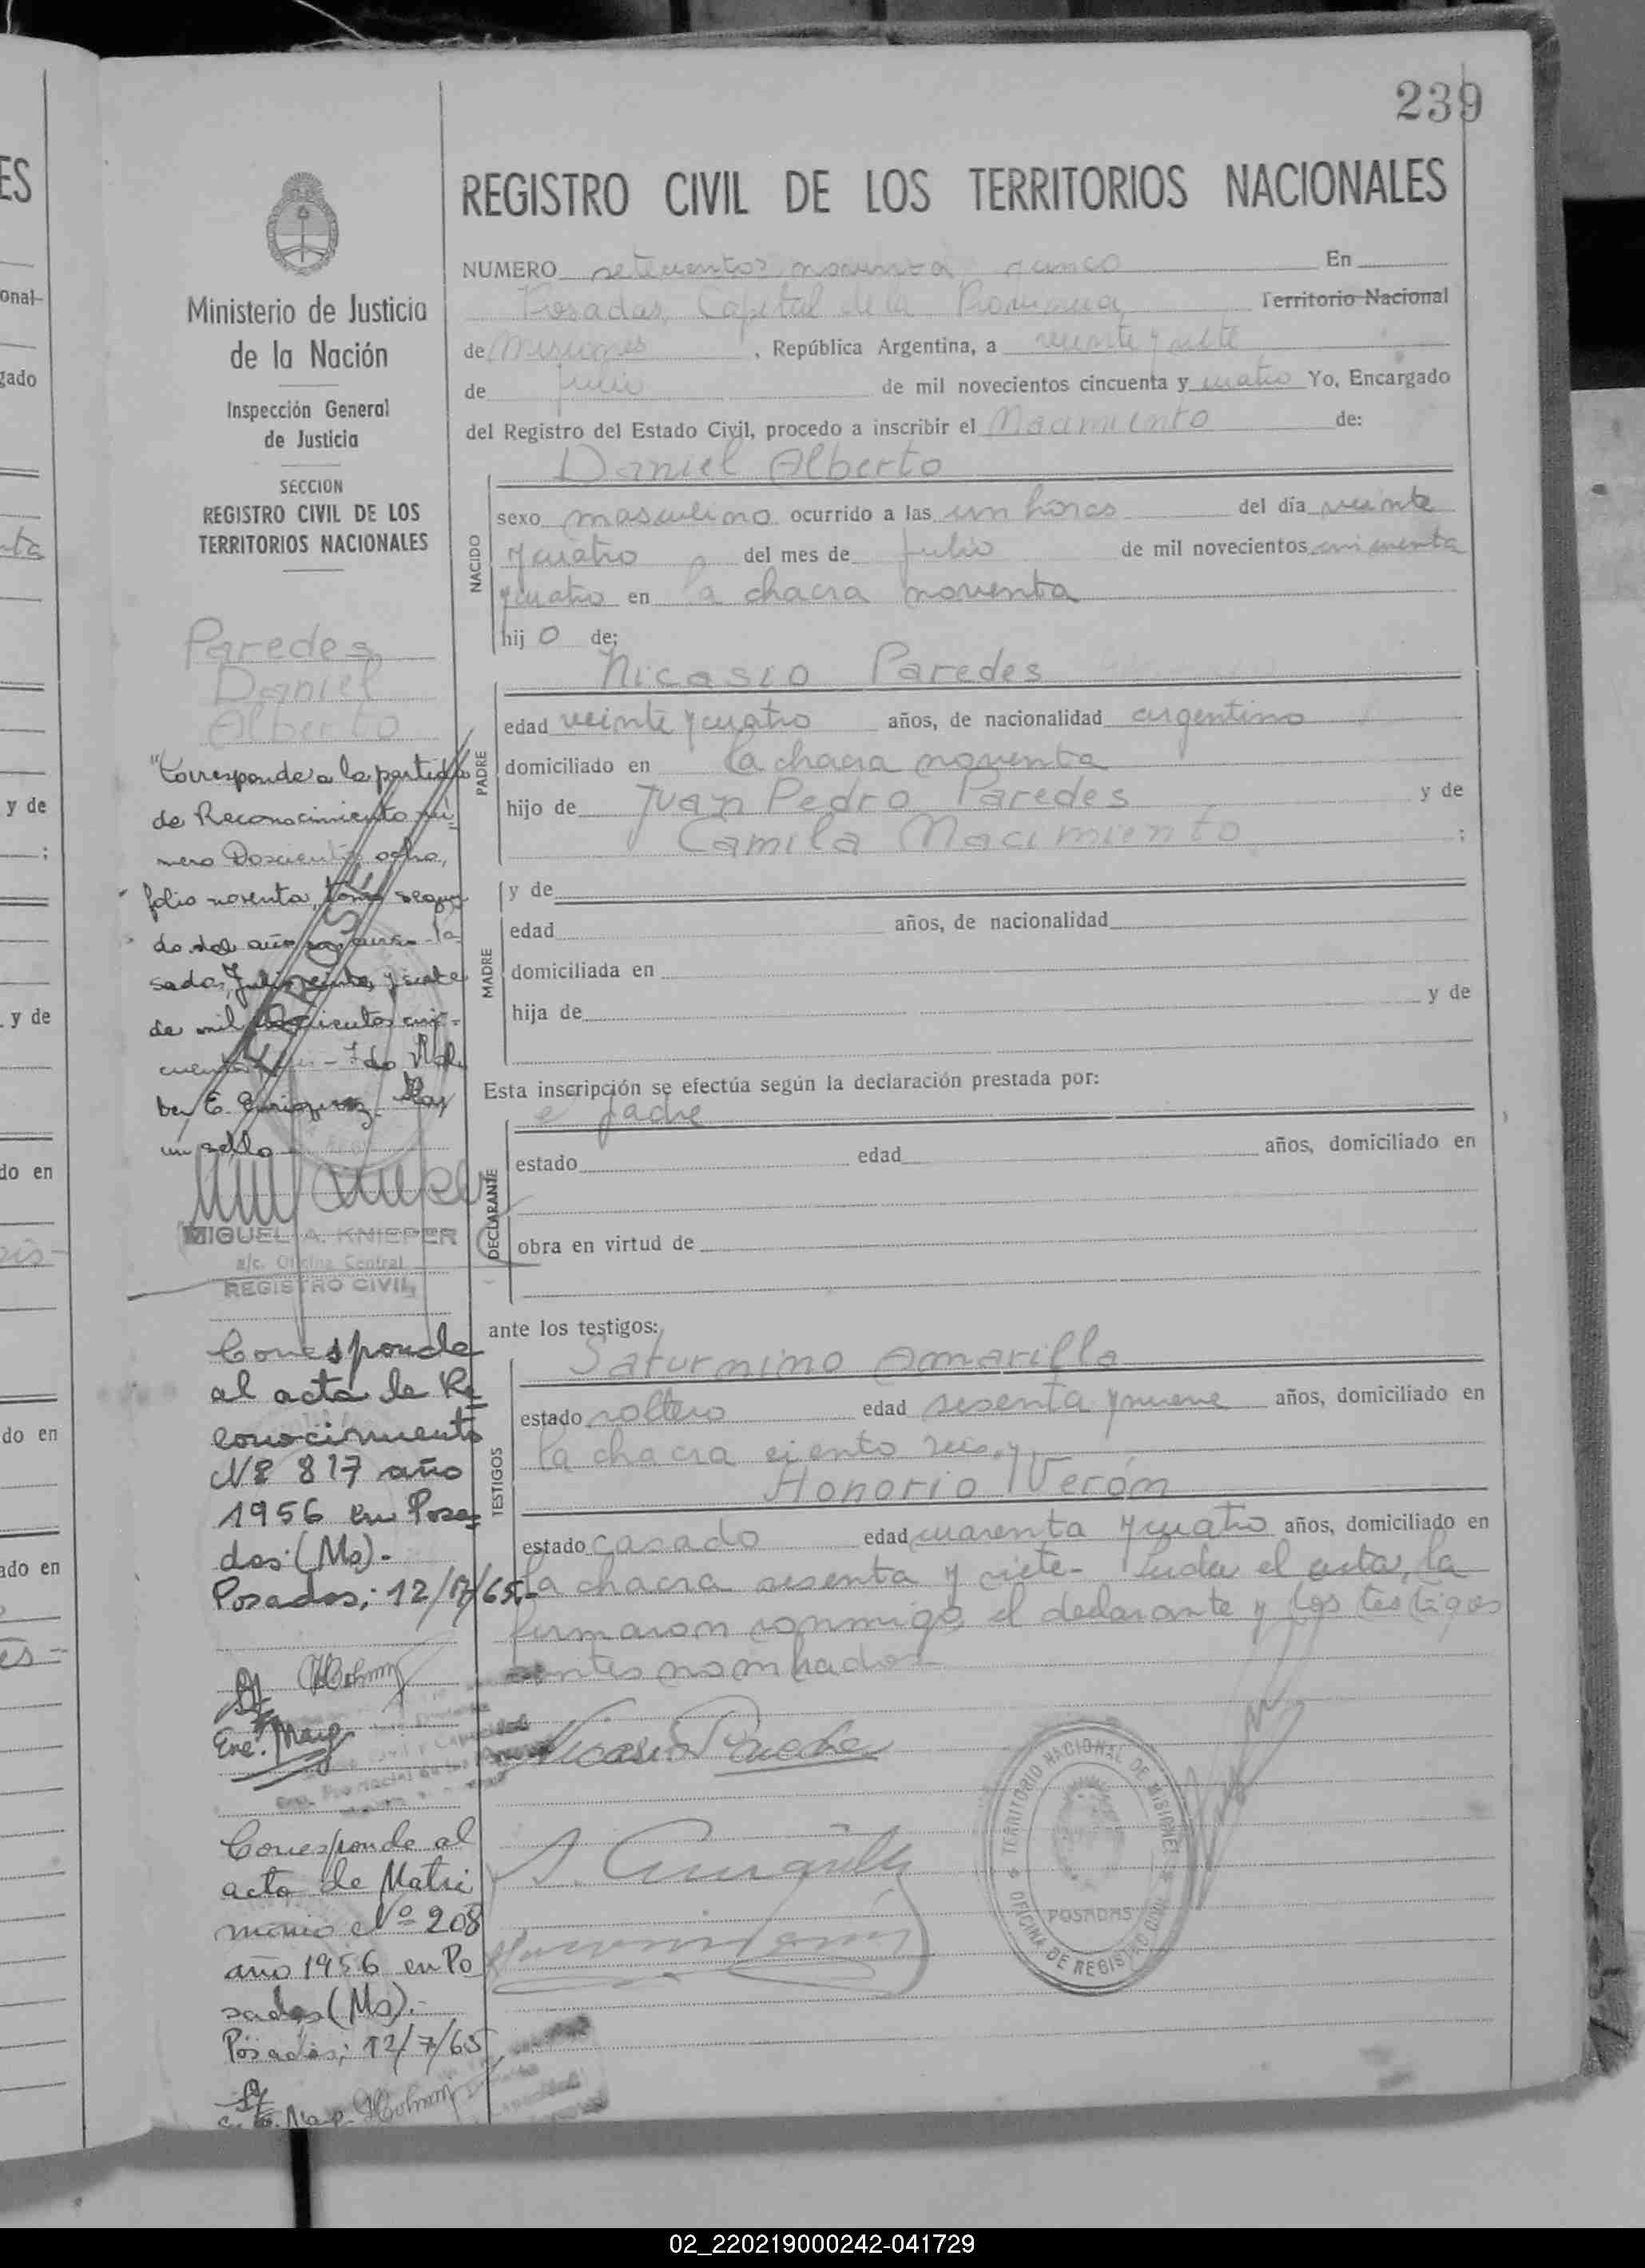 239
REGISTRO CIVIL DE LOS TERRITORIOS NACIONALES
NUMERO setecientos noventa y cinco En
Posadas, Capital de la Provincia, Territorio Nacional
de Misiones, República Argentina, a veinte y siete
de julio de mil novecientos cincuenta y cuatro Yo, Encargado
del Registro del Estado Civil, procedo a inscribir el Nacimiento de:
Daniel Alberto
NACIDO
sexo masculino ocurrido a las un horas del día veinte
y cuatro del mes de julio de mil novecientos cincuenta
y cuatro en la chacra noventa
hij o de:
Nicasio Paredes
PADRE
edad veinte y cuatro años, de nacionalidad argentino
domiciliado en la chacra noventa
hijo de Juan Pedro Paredes y de
Camila Nacimiento ;
MADRE
y de
edad años, de nacionalidad
domiciliada en
hija de y de
Esta inscripción se efectúa según la declaración prestada por:
el padre
DECLARANTE
estado edad años, domiciliado en
obra en virtud de
ante los testigos:
Saturnino Amarilla
TESTIGOS
estado soltero edad sesenta y nueve años, domiciliado en
la chacra ciento seis, y
Honorio Verón
estado casado edad cuarenta y cuatro años, domiciliado en
la chacra sesenta y siete- Leida el acta, la
firmaron conmigo el declarante y los testigos
antes nombrados
Nicasio Paredes
S. Amarilla
TERRITORIO NACIONAL DE MISIONES
POSADAS
OFICINA DE REGISTRO CIVIL
Ministerio de Justicia
de la Nación
Inspección General
de Justicia
SECCION
REGISTRO CIVIL DE LOS
TERRITORIOS NACIONALES
Paredes
Daniel
Alberto
"Corresponde a la partida
de Reconocimiento nú-
mero Doscientos ocho,
folio noventa, tomo segun
do del año
sadas, Julio veinte y siete
de mil novecientos cin-
cuenta
un sello
MIGUEL A. KNIEPER
a/c. Oficina Central
REGISTRO CIVIL
Corresponde
al acta de Re
conocimiento
Nº 817 año
1956 en Posa-
das (Ms).-
Posadas; 12/7/65.-
Corresponde al
acta de Matri
monio Nº 208
año 1956 en Po
sadas (Ms).-
Posadas; 12/7/65
ES
onal-
gado
y de
;
y de
do en
do en
ado en
02_220219000242-041729